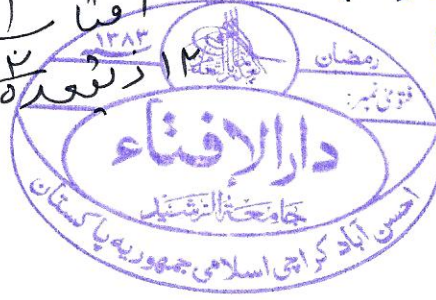 افتا
١٢ ذیقعدہ
١٣٨٣
رمضان
فتویٰ نمبر:
دارالإفتاء
جامعة الرشيد
احسن آباد كراچی اسلامی جمهوریه پاکستان